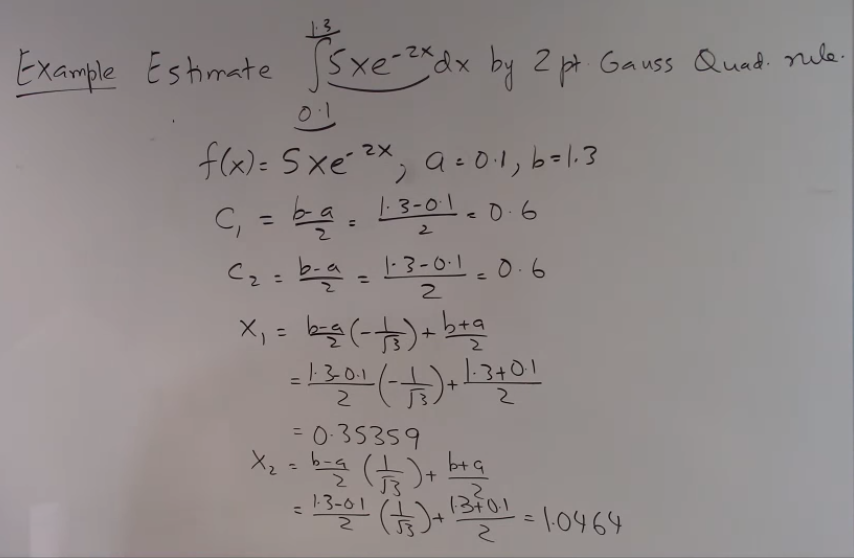 Example Estimate ∫_{0.1}^{1.3} 5xe^{-2x}dx by 2 pt. Gauss Quad. rule.
f(x) = 5xe^{-2x}, a = 0.1, b = 1.3
C₁ = (b-a)/2 = (1.3-0.1)/2 = 0.6
C₂ = (b-a)/2 = (1.3-0.1)/2 = 0.6
X₁ = (b-a)/2 (-1/√3) + (b+a)/2
= (1.3-0.1)/2 (-1/√3) + (1.3+0.1)/2
= 0.35359
X₂ = (b-a)/2 (1/√3) + (b+a)/2
= (1.3-0.1)/2 (1/√3) + (1.3+0.1)/2 = 1.0464